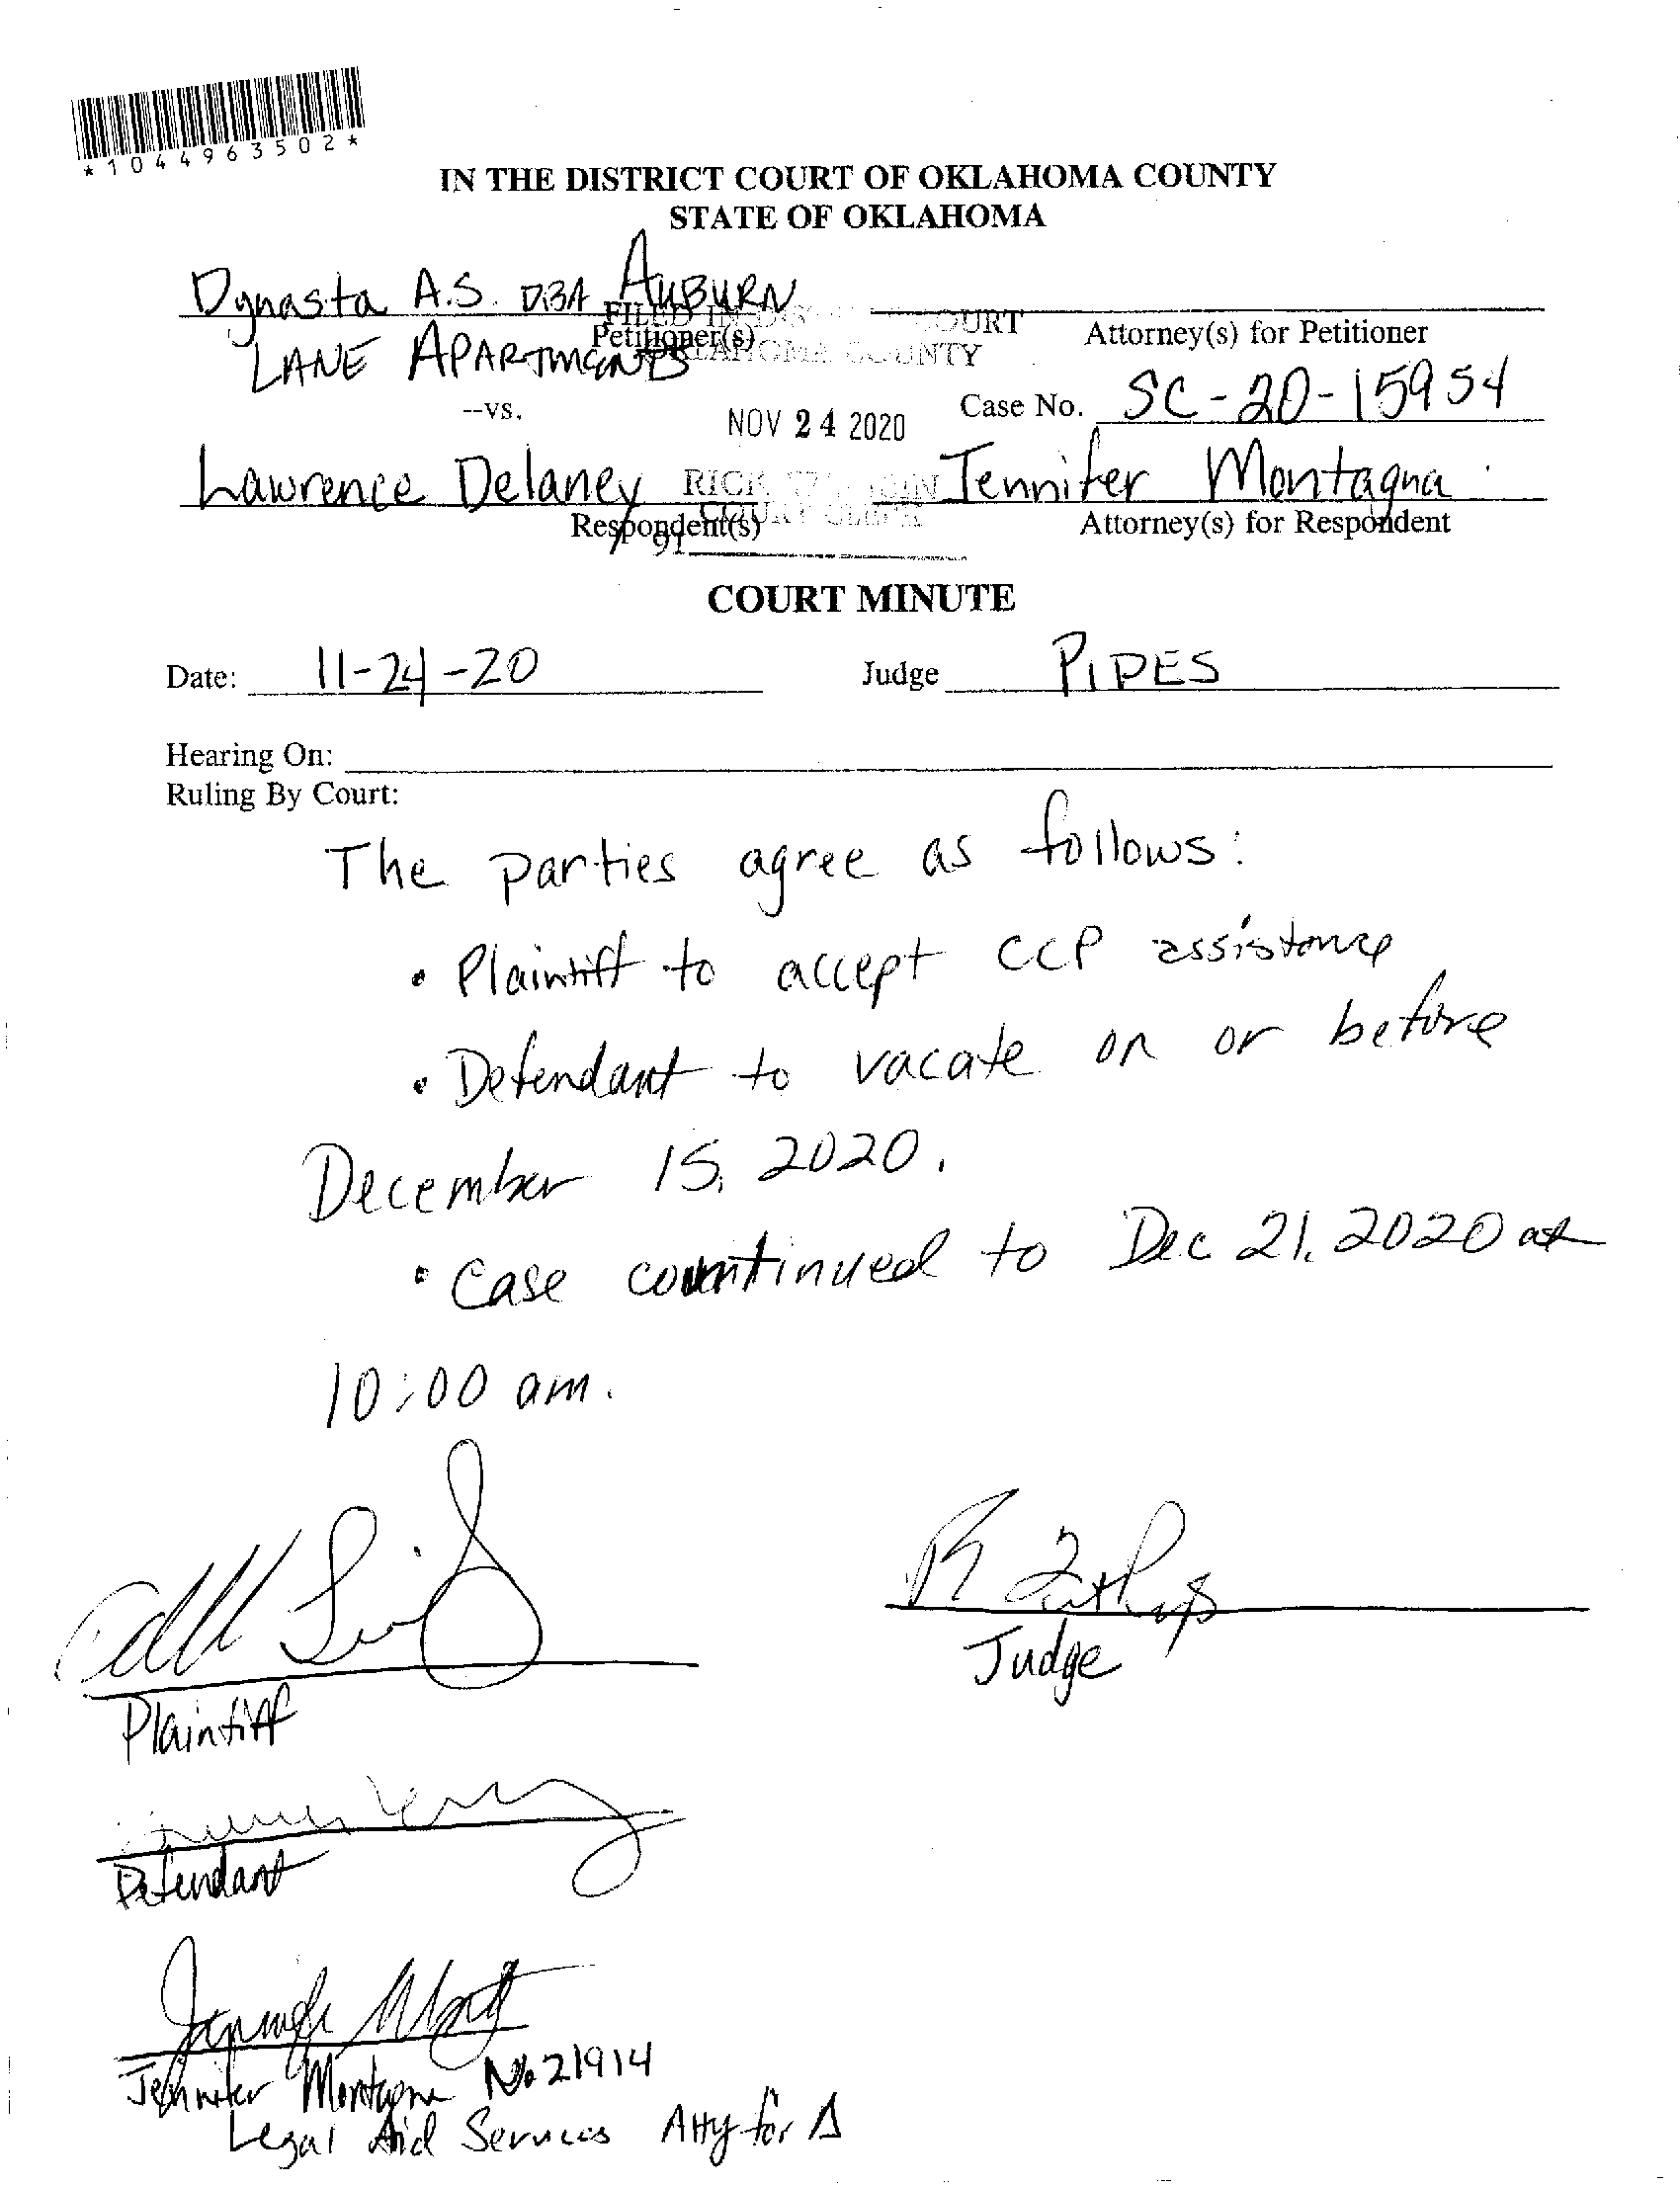 *1044963502*
IN THE DISTRICT COURT OF OKLAHOMA COUNTY
STATE OF OKLAHOMA
Dynasta A.S. DBA AUBURN
LANE APARTMENTS
Petitioner(s)
Attorney(s) for Petitioner
FILED IN COURT
OKLAHOMA COUNTY
--vs.
NOV 24 2020
Case No. SC-20-15954
Lawrence Delaney
Respondent(s)
RICK
COURT CLERK
91
Jennifer Montagna
Attorney(s) for Respondent
COURT MINUTE
Date: 11-24-20
Judge PIPES
Hearing On:
Ruling By Court:
The parties agree as follows:
• Plaintiff to accept CCP assistance
• Defendant to vacate on or before
December 15, 2020.
• Case countinued to Dec 21, 2020 at
10:00 am.
Judge
Plaintiff
Defendant
Jennifer Montagna No 21914
Legal Aid Services Atty for Δ